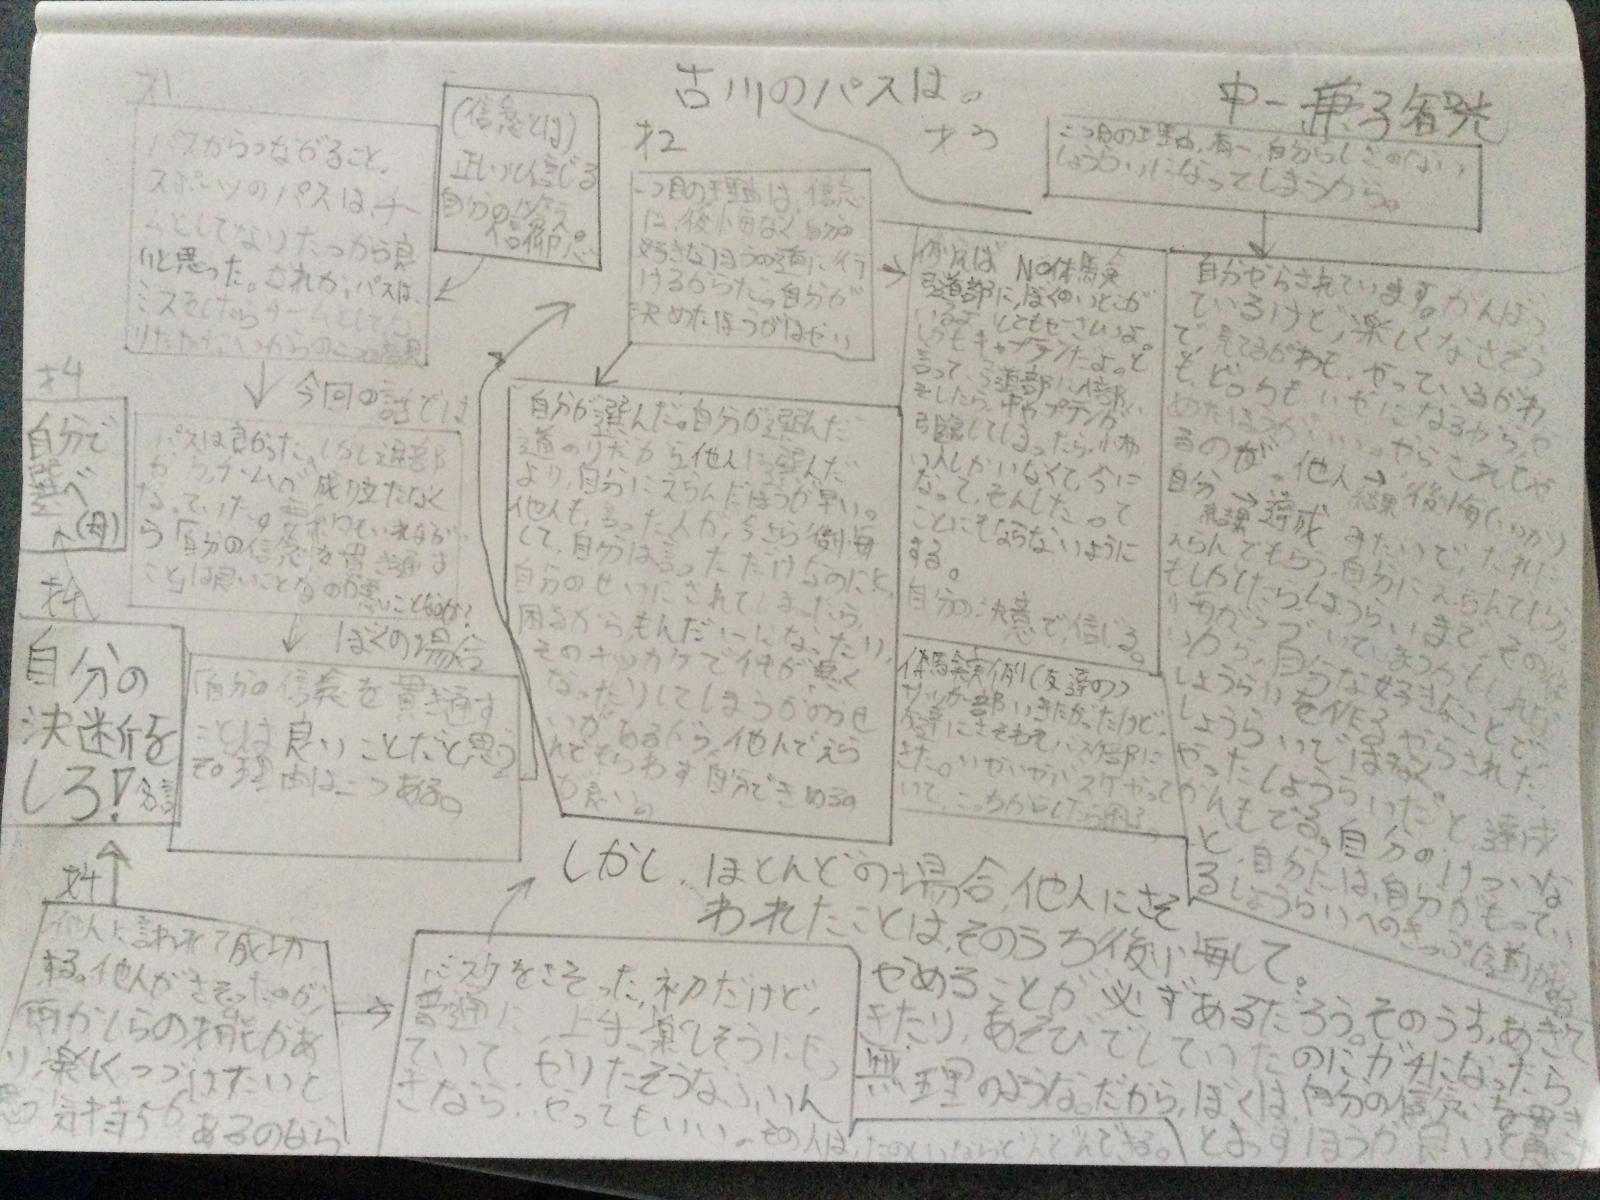 古川のパスは。
中一
才1
パスからつながること。
スポーツのパスは、チー
ムとしてなりたつから良
いと思った。だれか、パスは、
ミスをしたらチームとして
(信念とは)
正しいと信じる
自分の考え。
信仰心
才2
一つ目の理由は、信念
に、後悔なく自分の
好きなほうの道に行
けるからだ。自分が
決めたほうがはやい
才3
二つ目の理由、自分らしさのない
しょうらいになってしまうから。
今回の話では
パスは良かった。しかし
から、チームが成り立たなく
なっていた。
ら「自分の信念を貫き通す
こと」は良いことなのか悪いことなのか?
ぼくの場合
「自分の信念を貫き通す
ことは良いことだと思う
その理由は二つある。
自分が選んだ。自分が選んだ
道のりだから、他人に選んだ
より、自分にえらんだほうが早い。
他人も、言った人が、今さら後悔
して、自分は言っただけなのにと、
自分のせいにされてしまったら、
困るからもんだいになったり、
そのキッカケで仲が悪く
なったりしてしまうかのうせ
いがあるから、他人でえら
んでもらわず自分できめるの
が良い。
例えば No体験
弓道部に、ぼくのいとこが
いるよ とてもせーさいよ。
しかもキャプテンだよ。と
言って、弓道部に入部
をしたら、キャプテンが
引退してしまったら、こわ
い人しかいなくて、今に
なって、そんした。って
ことにもならないように
する。
自分の決意で、信じる。
体験実例(友達の)
サッカー部いきたかったけど、
友達にさそわれてバスケ部に
きた。いやいやバスケやって
いて、こっちからしたら困る。
自分やらされています。がんばっ
ているけど、楽しくなさそう
で、見てるがわも、やっているがわ
も、どっちもいやになるから、や
めたほうがいい。やらされてや
るのが。他人→結果 後悔(いつか)
自分→結果 達成 みたいで、だれに
えらんでもらう、自分にえらんでもらう。
もしかしたら、しょうらいまで、その後
悔がつづいてしまうかもしれな
いから、自分な好きなことで、
しょうらいを作る。やらされた、
しょうらいではなく。
やったしょうらいだ、と、達成
かんもでる。自分のけついな
ど、自分には、自分がもってい
るしょうらいへのきっぷ
才4
自分で
選べ
(母)
才4
自分の
決断を
しろ! 名言
才4
他人に言われて成功
する。他人がさそったのが、
前からの才能があ
り、楽しくつづけたいと
思う気持ちが あるのなら
バスケをさそった、初だけど、
普通に、上手、楽しそうにやっ
ていて、やりたそうな、いいん
きなら、やってもいい。その人は、
たのしいならどんどんできる。
しかし、ほとんどの場合、他人にさそ
われたことは、そのうち後悔して。
やめることが必ずあるだろう。そのうち、あきて
きたり、あそびでしていたのにガチになったら
無理のような。だから、ぼくは、自分の信念をつき
とおすほうが良いと思った